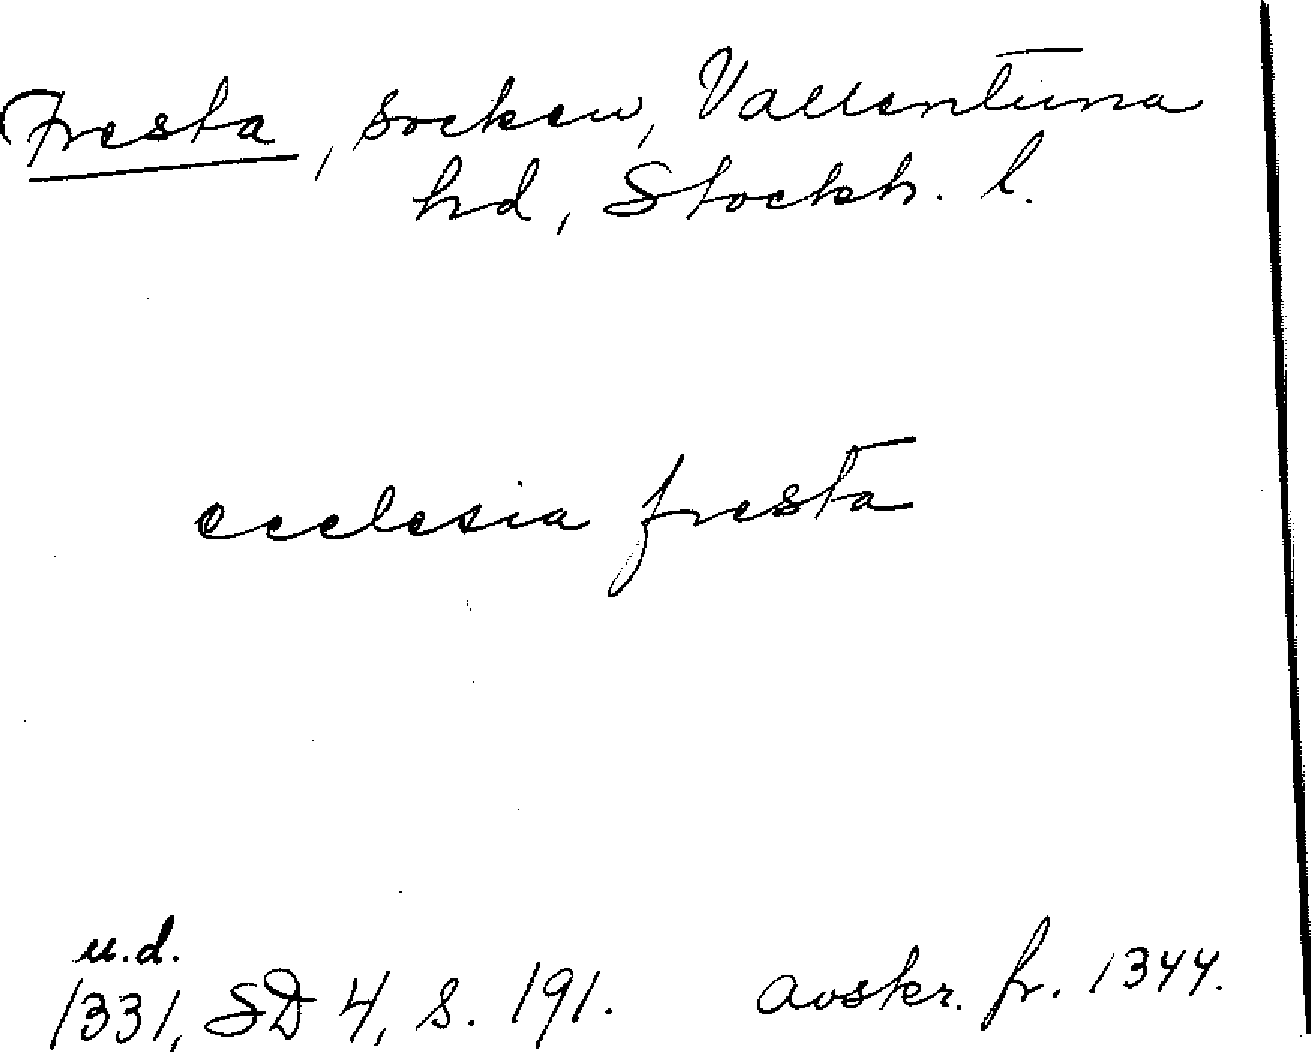 Fresta, socken, Vallentuna
hd, Stockh. l.
ecclesia fresta
u.d.
1331, SD 4, s. 191. avskr. fr. 1344.